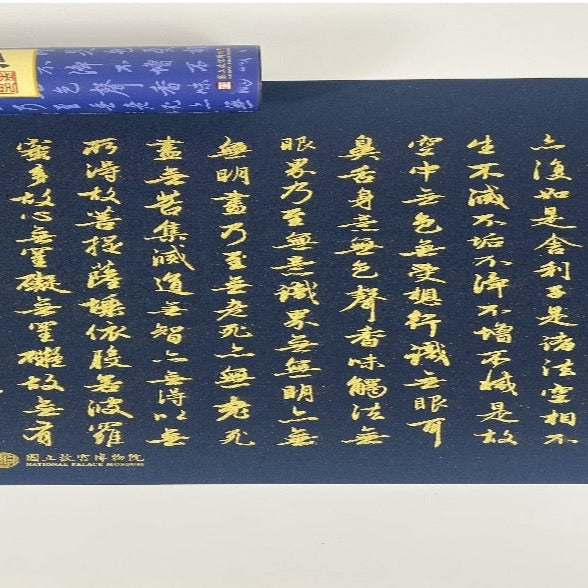 亦復如是舍利子是諸法空相不
生不滅不垢不淨不增不減是故
空中無色無受想行識無眼耳
鼻舌身意無色聲香味觸法無
眼界乃至無意識界無無明亦無
無明盡乃至無老死亦無老死
盡無苦集滅道無智亦無得以無
所得故菩提薩埵依般若波羅
蜜多故心無罣礙無罣礙故無有
國立故宮博物院
NATIONAL PALACE MUSEUM
不淨不增
色聲香味